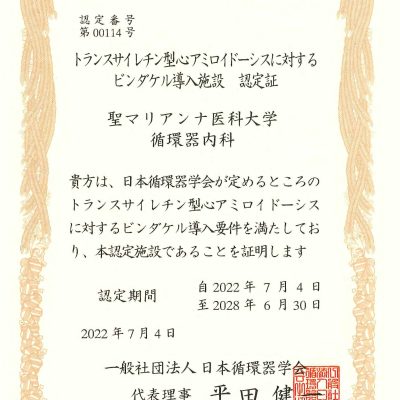 認定番号
第00114号
トランスサイレチン型心アミロイドーシスに対する
ビンダケル導入施設 認定証
聖マリアンナ医科大学
循環器内科
貴方は、日本循環器学会が定めるところの
トランスサイレチン型心アミロイドーシス
に対するビンダケル導入要件を満たしてお
り、本認定施設であることを証明します
認定期間
自2022年 7月 4日
至2028年 6月30日
2022年7月4日
一般社団法人 日本循環器学会
代表理事 平田健一